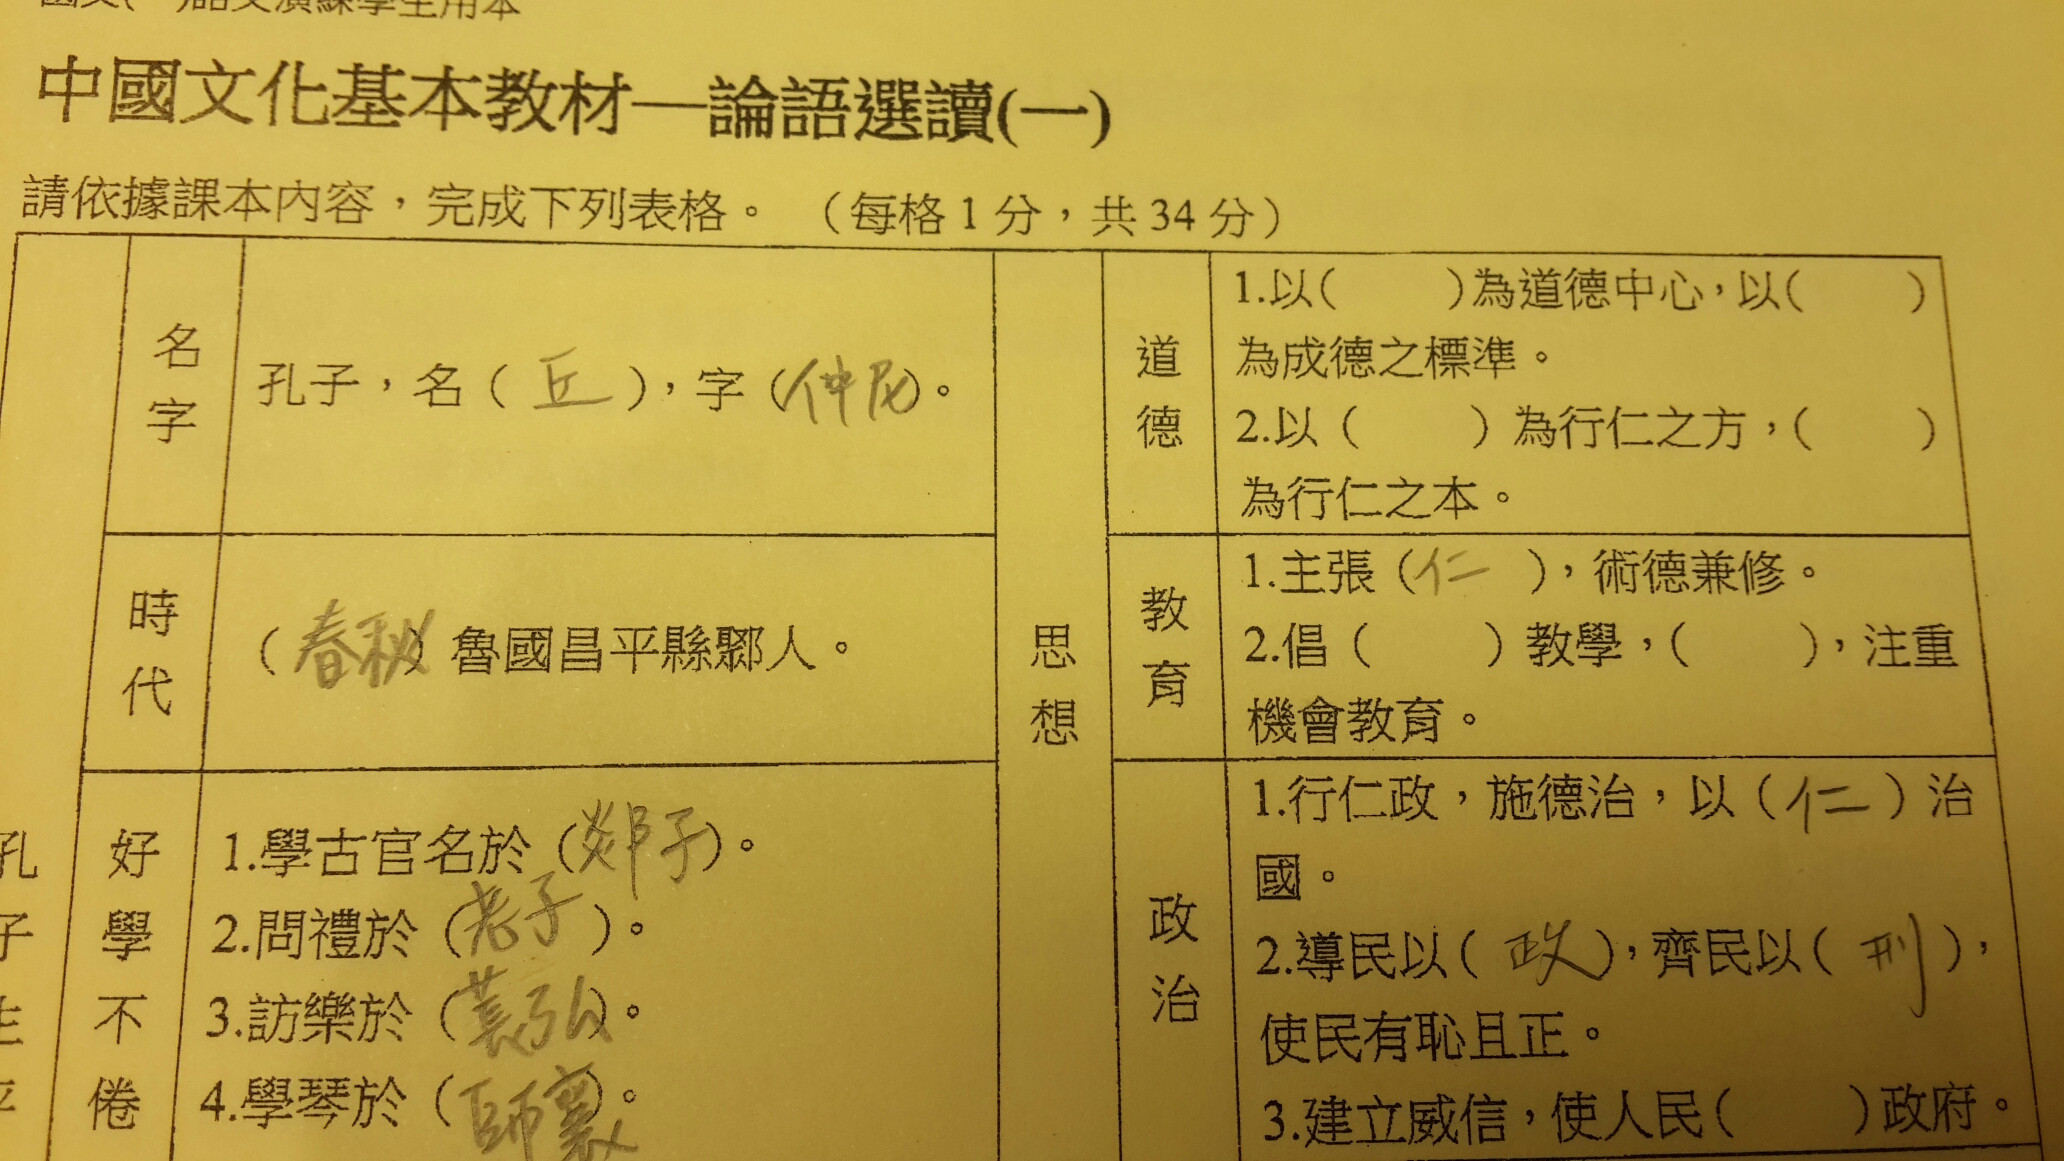 語文演練學生用本
中國文化基本教材—論語選讀(一)
請依據課本內容，完成下列表格。（每格1分，共34分）
孔子生平
名字
孔子，名（丘），字（仲尼）。
時代
（春秋）魯國昌平縣鄹人。
好學不倦
1.學古官名於（郯子）。
2.問禮於（老子）。
3.訪樂於（萇弘）。
4.學琴於（師襄）。
思想
道德
1.以(　　)為道德中心，以(　　)
為成德之標準。
2.以（　　）為行仁之方，（　　）
為行仁之本。
教育
1.主張（仁　），術德兼修。
2.倡（　　）教學，（　　），注重
機會教育。
政治
1.行仁政，施德治，以（仁）治
國。
2.導民以（政），齊民以（刑），
使民有恥且正。
3.建立威信，使人民（　　）政府。